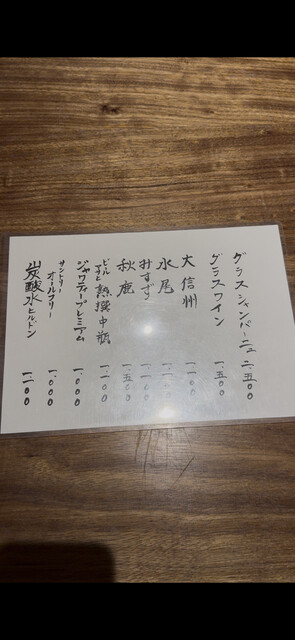 グラスシャンパーニュ 二、五〇〇
グラスワイン 一、五〇〇
大信州 一、一〇〇
水尾 一、一〇〇
みすず 一、一〇〇
秋鹿 一、五〇〇
ビール 熟撰中瓶 一、一〇〇
ジャワティープレミアム 一、〇〇〇
サントリー
オールフリー 一、〇〇〇
炭酸水ヒルドン 一、一〇〇